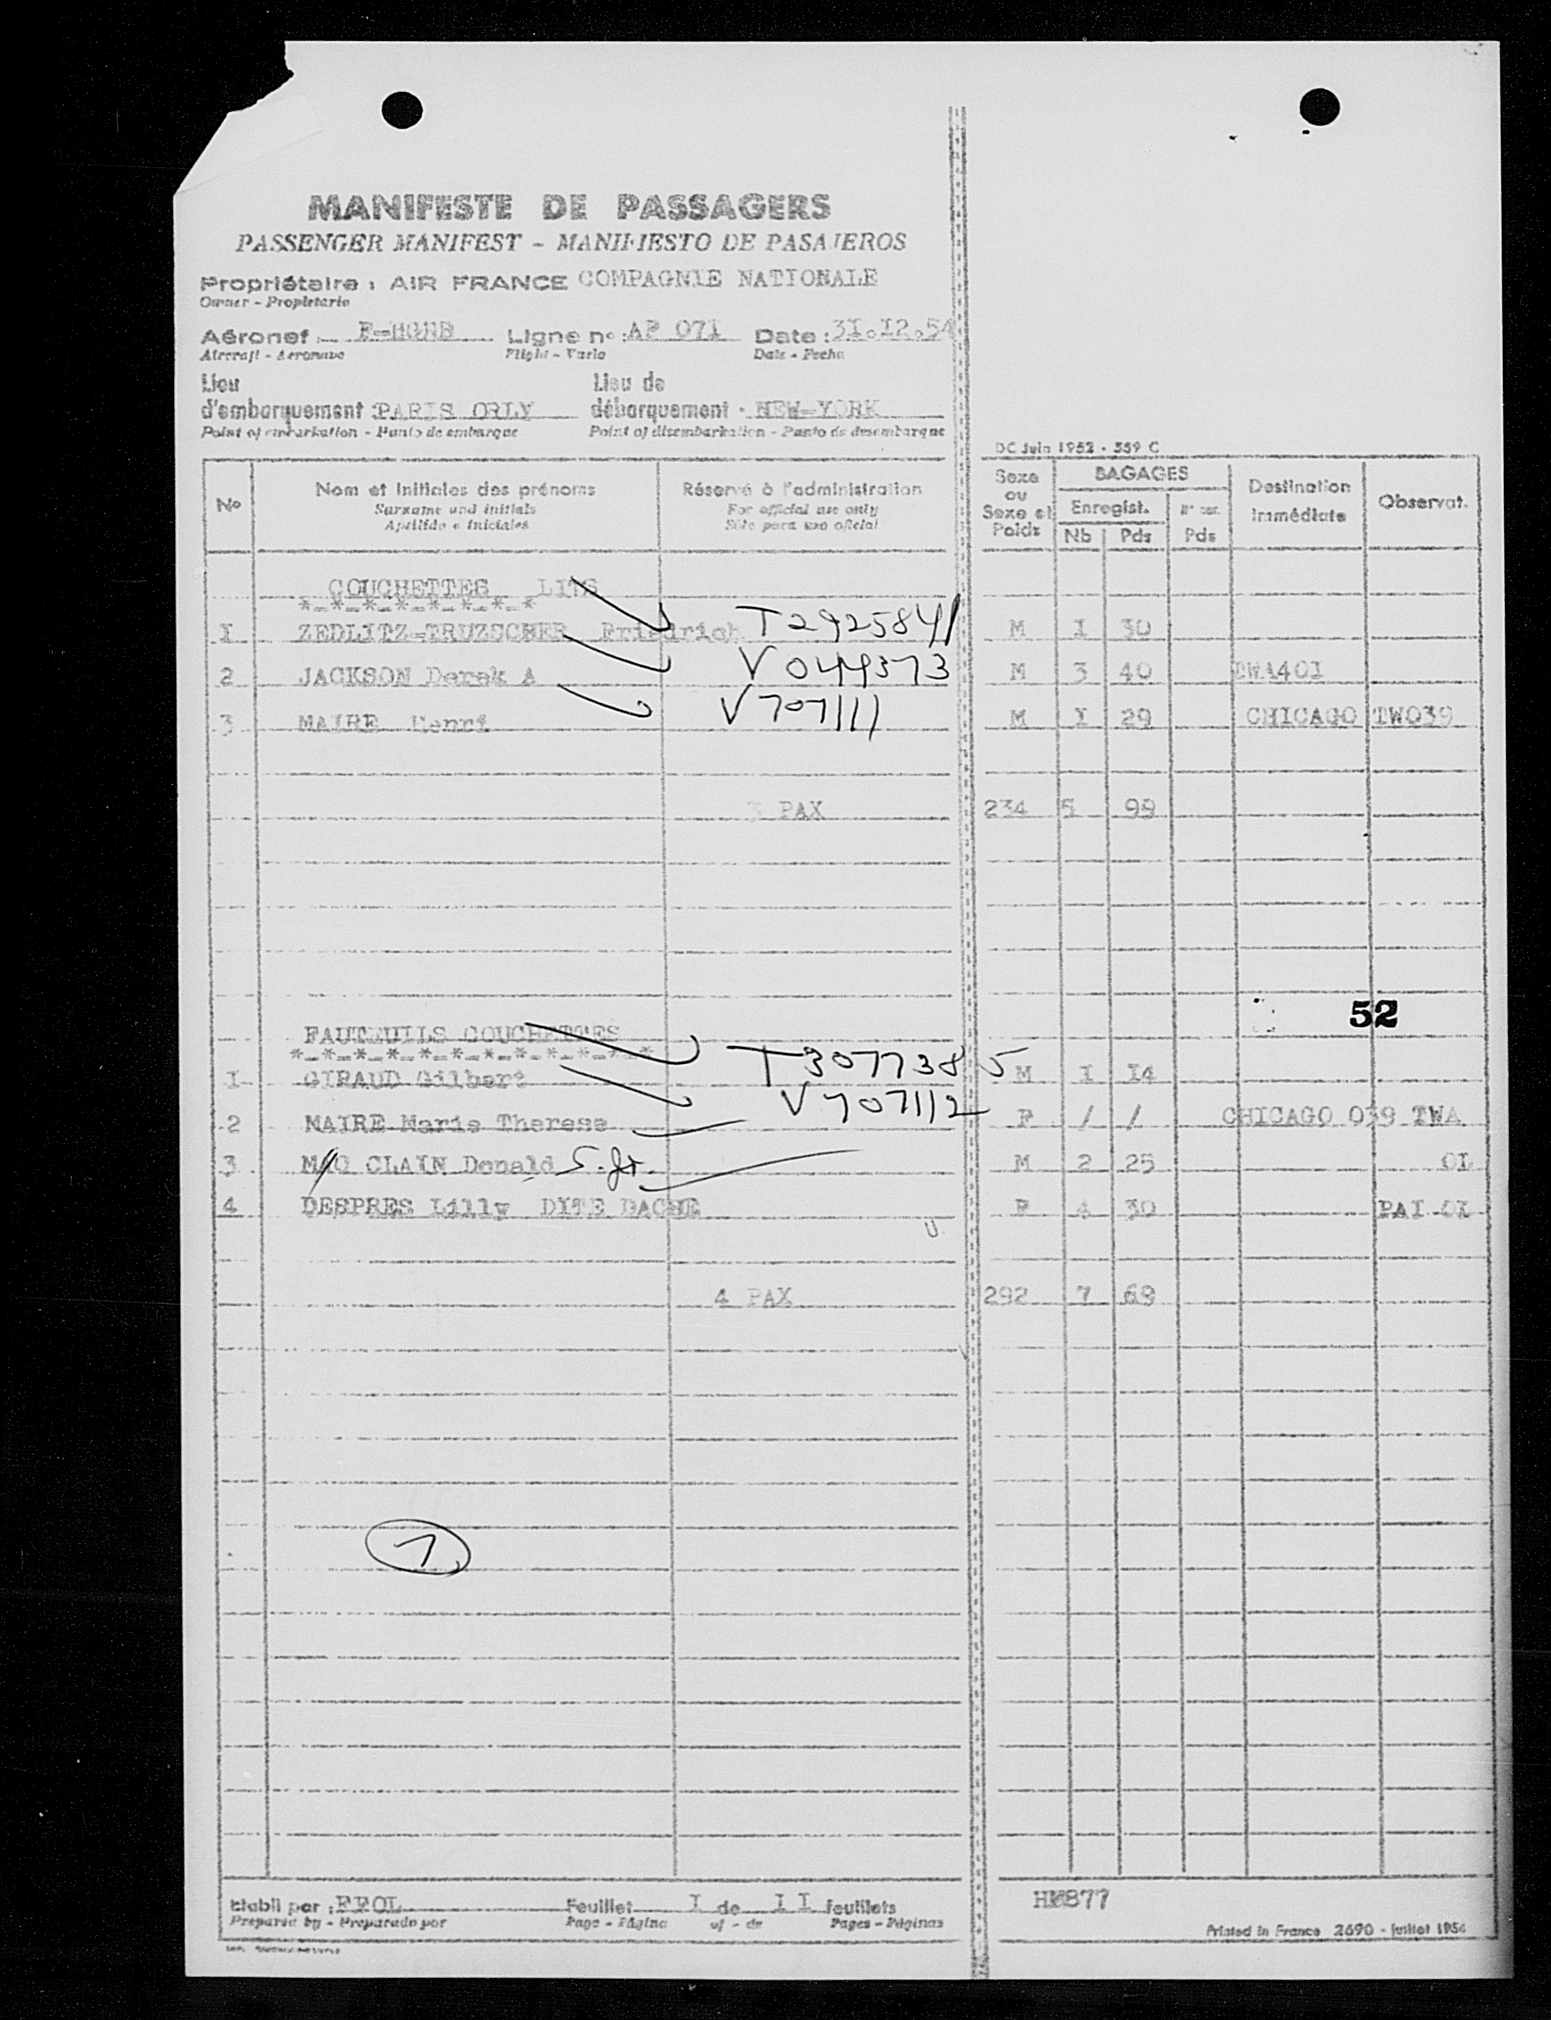 MANIFESTE DE PASSAGERS
PASSENGER MANIFEST - MANIFIESTO DE PASAJEROS
Propriétaire : AIR FRANCE COMPAGNIE NATIONALE
Owner - Propietario
Aéronef : Ligne n° : AF 071 Date : 31.12.54
Aircraft - Aeronave Flight - Vuelo Date - Fecha
Lieu Lieu de
d'embarquement : PARIS ORLY débarquement : NEW-YORK
Point of embarkation - Punto de embarque Point of disembarkation - Punto de desembarque
DC Juin 1952 - 559 C
N° Nom et initiales des prénoms Réservé à l'administration Sexe ou Sexe et Poids BAGAGES Destination immédiate Observat.
Surname and initials For official use only Enregist.
Apellido e iniciales Sólo para uso oficial Nb Pds Pds
COUCHETTES LITS
*-*-*-*-*-*-*-*
1 ZEDLITZ-TRUZSCHER Friedrich T2925841 M I 30
2 JACKSON Derek A V 044373 M 3 40 TWA401
3 MAIRE Henri V707111 M I 29 CHICAGO TW039
3 PAX 234 5 99
52
FAUTEUILS COUCHETTES
*-*-*-*-*-*-*-*-*-*-*-*
1 GIRAUD Gilbert T3077385 M I 14
2 MAIRE Marie Therese V707112 F / / CHICAGO 039 TWA
3 MAC CLAIN Donald S. Jr. M 2 25 OI
4 DESPRES Lilly DITE DACHE F 4 30 PAI OI
4 PAX 292 7 69
1
Etabli par : EFOL Feuillet I de II feuillets HM877
Prepared by - Preparado por Page - Página of - de Pages - Páginas
Printed in France 2690 - juillet 1954